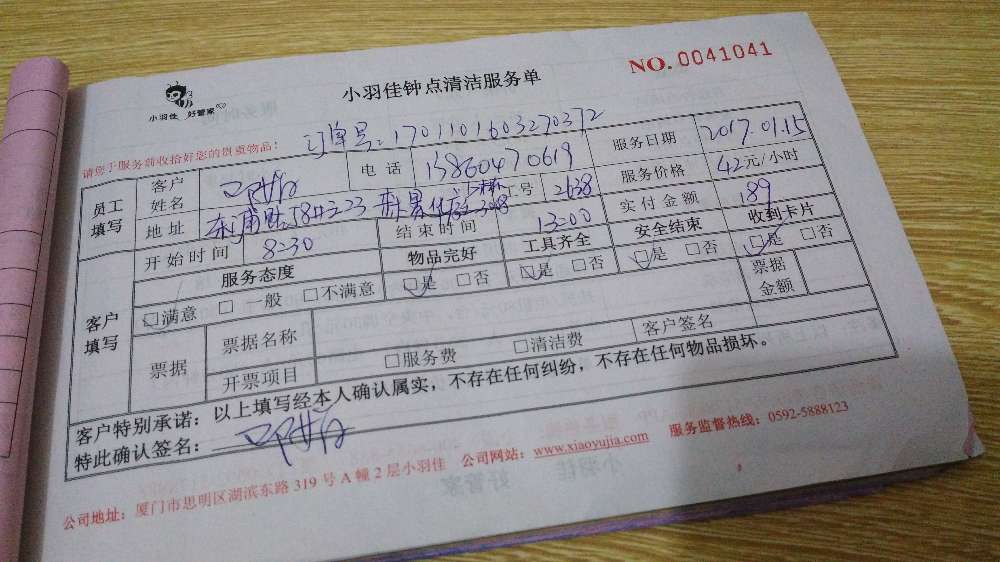 小羽佳 好管家
小羽佳钟点清洁服务单
NO. 0041041
请您于服务前收拾好您的贵重物品:
订单号: 1701101603270372
员工填写 客户姓名 电话 13860470619 服务日期 2017.01.15
地址 工号 2638 服务价格 42元/小时
开始时间 8:30 结束时间 13:00 实付金额 189
客户填写 服务态度 物品完好 工具齐全 安全结束 收到卡片
☑满意 □一般 □不满意 ☑是 □否 ☑是 □否 ☑是 □否 ☑是 □否
票据 票据名称 票据金额
开票项目 □服务费 □清洁费 客户签名
客户特别承诺:以上填写经本人确认属实,不存在任何纠纷,不存在任何物品损坏。
特此确认签名:
公司地址:厦门市思明区湖滨东路319号A幢2层小羽佳 公司网站:www.xiaoyujia.com 服务监督热线:0592-5888123